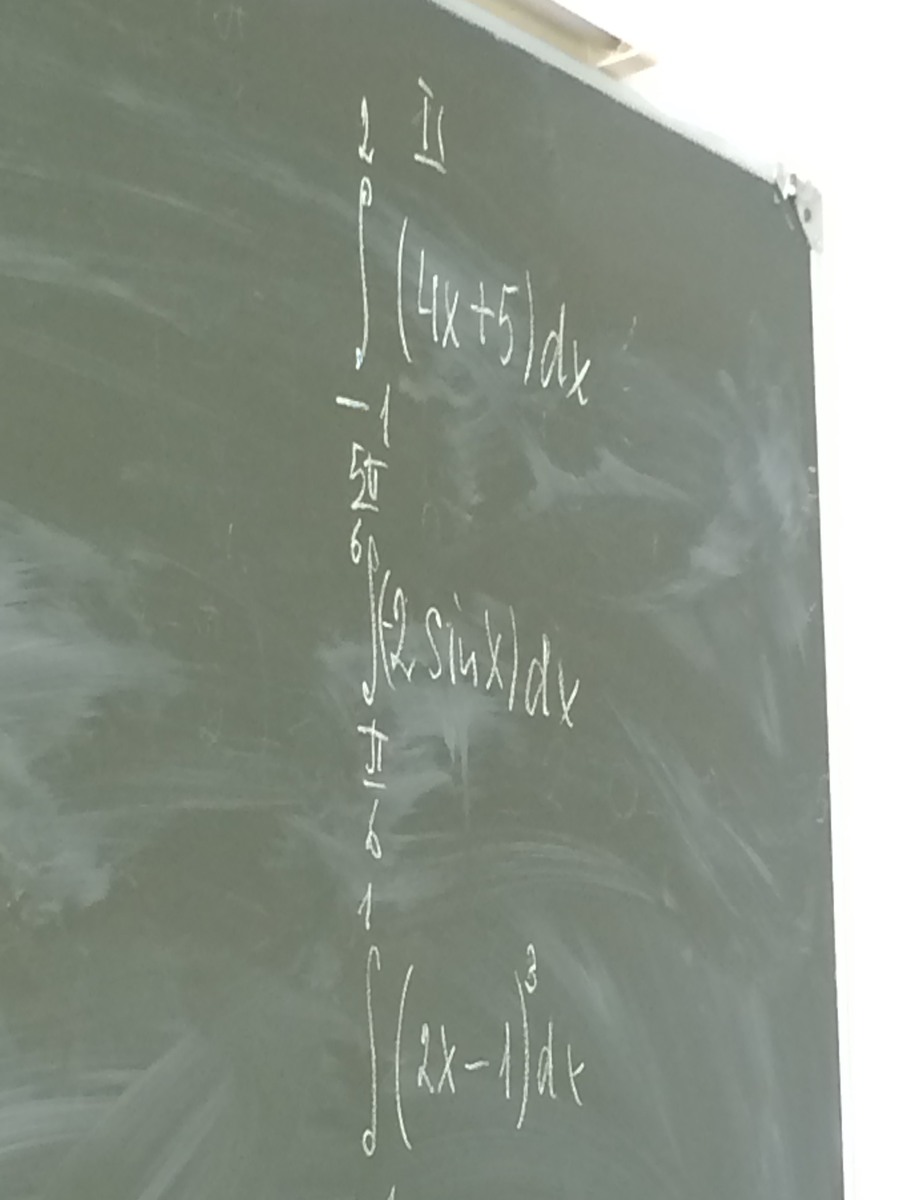 II
∫_{-1}^{2} (4x+5)dx
∫_{π/6}^{5π/6} (-2 sin x)dx
∫^{1} (2x-1)^3 dx